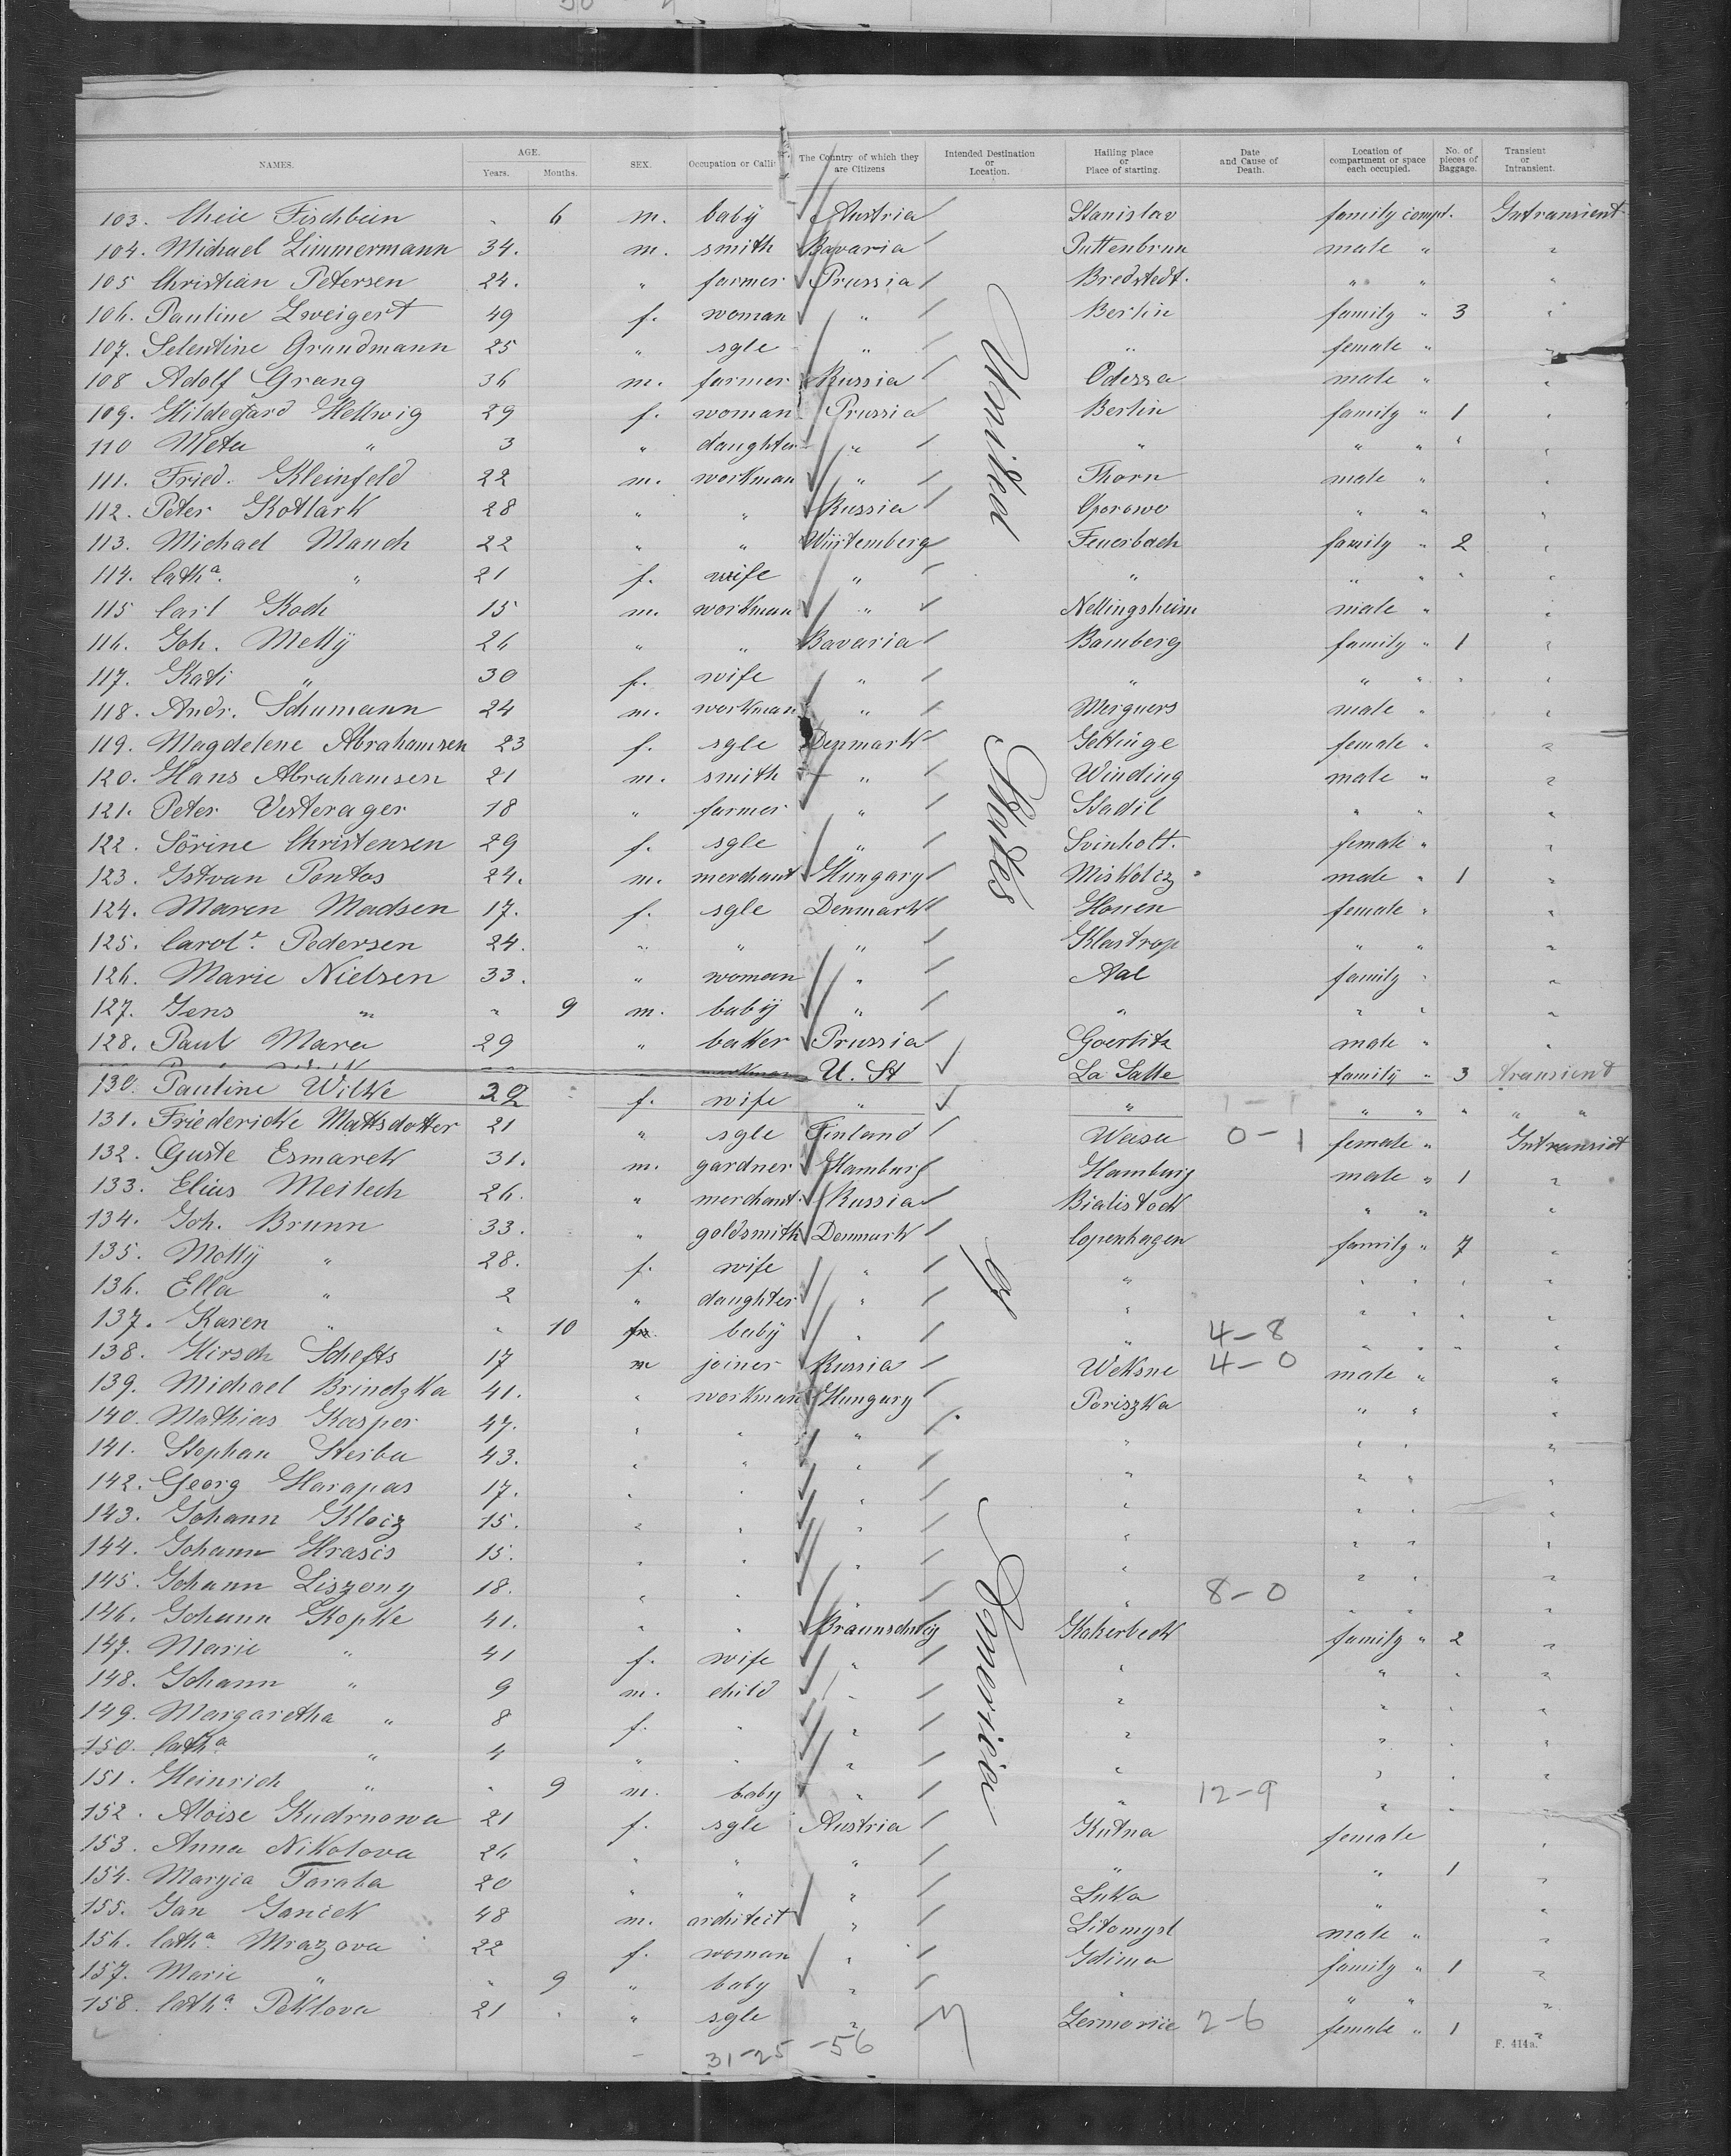 NAMES. AGE. Years. Months. SEX. Occupation or Calli The Country of which they are Citizens Intended Destination or Location. Hailing place or Place of starting. Date and Cause of Death. Location of compartment or space each occupied. No. of pieces of Baggage. Transient or Intransient.
United States of America
103. Fischbein " 6 m. baby Austria Stanislav family compt. Intransient
104. Michael Zimmermann 34. m. smith Bavaria Puttenbrun male " "
105 Christian Petersen 24. " farmer Prussia Bredstedt. " " "
106. Pauline Zweigert 49 f. woman " Berlin family " 3 "
107. Selentine Grundmann 25 " sgle " " female " "
108 Adolf Grang 36 m. farmer Russia Odessa male " "
109. Hildegard Hellwig 29 f. woman Prussia Berlin family " 1 "
110 Meta " 3 " daughter " " " " " "
111. Fried. Kleinfeld 22 m. workman " Thorn male " "
112. Peter Kotlark 28 " " Russia Gorowo " " "
113. Michael Mauch 22 " " Würtemberg Feuerbach family " 2 "
114. Catha. " 21 f. wife " " " " " "
115 Carl Koch 15 m. workman " Nellingsheim male " "
116. Joh. Melly 26 " " Bavaria Bamberg family " 1 "
117. Kati " 30 f. wife " " " " " "
118. Andr. Schumann 24 m. workman " Merguers male " "
119. Magdelene Abrahamsen 23 f. sgle Denmark Gettinge female " "
120. Hans Abrahamsen 21 m. smith " Winding male " "
121. Peter Vesterager 18 " farmer " Stadil " " "
122. Sörine Christensen 29 f. sgle " Svinholt. female " "
123. Istvan Pontos 24. m. merchant Hungary Miskolcz male " 1 "
124. Maren Madsen 17. f. sgle Denmark Honen female " "
125. Carole. Pedersen 24. " " " Klastrop " " "
126. Marie Nielsen 33. " woman " Aal family " "
127. Jens " " 9 m. baby " " " " "
128. Paul Mara 29 " baker Prussia Goerlitz male " "
U. St La Salle family " 3 transient
130. Pauline Wilke 32 f. wife " " 1-1 " " " " "
131. Friedericke Mattsdotter 21 " sgle Finland Wasa 0-1 female " Intransient
132. Guste Esmarck 31. m. gardner Hamburg Hamburg male " 1 "
133. Elias Meilech 26. " merchant Russia Bialistock " " "
134. Joh. Brunn 33. " goldsmith Denmark Copenhagen family " 7 "
135. Melly " 28. f. wife " " " " " "
136. Ella " 2 " daughter " " " " " "
137. Karen " " 10 baby " " 4-8 " " " "
138. Hirsch Schefts 17 m joiner Russia Weksne 4-0 male " "
139. Michael Brindzka 41. " workman Hungary Poriszka " " "
140. Mathias Kasper 47. " " " " " " "
141. Stephan Sterba 43. " " " " " " "
142. Georg Harapas 17. " " " " " " "
143. Johann Klocz 15. " " " " " " "
144. Johann Hrascs 15. " " " " " " "
145. Johann Liszony 18. " " " " 8-0 " " "
146. Johann Kopke 41. " " Braunschweig Hakerbeck family " 2 "
147. Marie " 41 f. wife " " " " "
148. Johann " 9 m. child " " " " "
149. Margaretha " 8 f. " " " " " "
150. Catha " 4 " " " " " " "
151. Heinrich " " 9 m. baby " " 12-9 " " "
152. Aloise Kudrnowa 21 f. sgle Austria Kutna female "
153. Anna Nikolova 26 " " " " " 1 "
154. Maryia Tarala 20 " " " Luka " "
155. Jan Janicek 48 m. architect " Litomysl male " "
156. Catha. Mrazova 22 f. woman " Gdima family " 1 "
157. Marie " " 9 " baby " " " " "
158. Catha. Peklova 21 " " sgle " Germorice 2-6 female " 1 "
31-25-56
F. 414a.